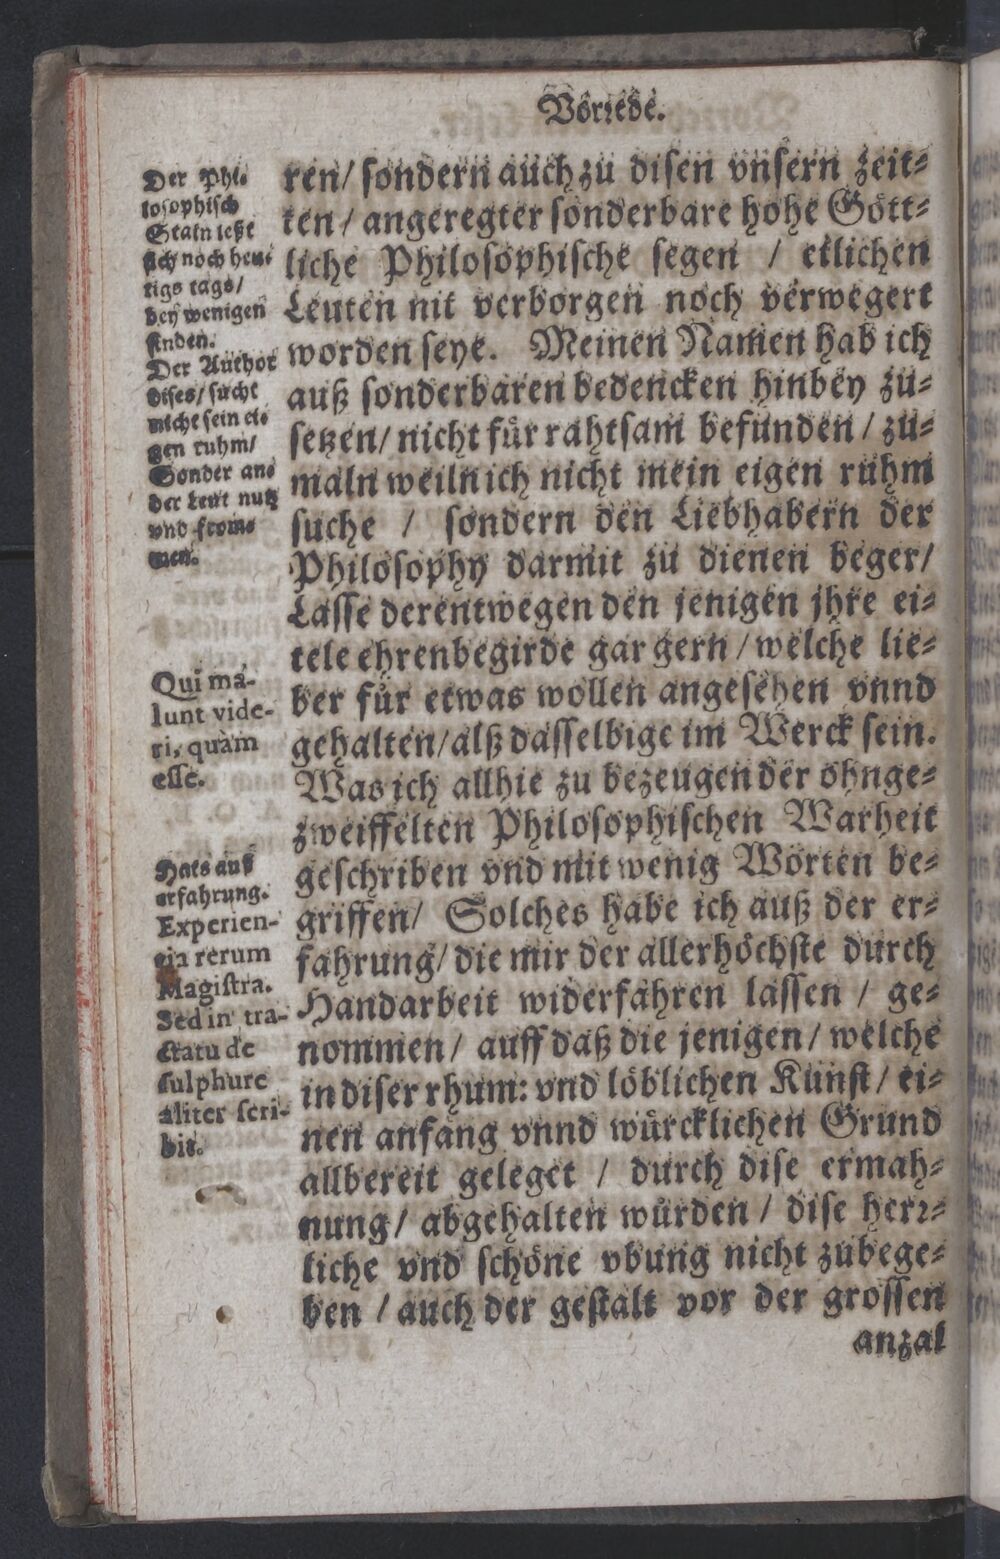 Vorrede.
Der Phi-
losophisch
Stain leßt
sich noch heu-
tigs tags/
bey wenigen
finden.
Der Author
dises/ sucht
nicht sein ei-
gen ruhm/
Sonder an-
der Leut nutz
vnd from-
men.
Qui ma-
lunt vide-
ri, quàm
esse.
Hats auß
erfahrung.
Experien-
tia rerum
Magistra.
Sed in tra-
ctatu de
sulphure
aliter scri-
bit.
ren/ sondern auch zu disen vnsern zeit-
ten / angeregter sonderbare hohe Gött-
liche Philosophische segen / etlichen
Leuten nit verborgen noch verwegert
worden seye. Meinen Namen hab ich
auß sonderbaren bedencken hinbey zu-
setzen/ nicht für rahtsam befunden / zu-
maln weiln ich nicht mein eigen ruhm
suche / sondern den Liebhabern der
Philosophy darmit zu dienen beger/
Lasse derentwegen den jenigen jhre ei-
tele ehrenbegirde gar gern / welche lie-
ber für etwas wollen angesehen vnnd
gehalten/ alß dasselbige im Werck sein.
Was ich allhie zu bezeugen der ohnge-
zweiffelten Philosophischen Warheit
geschriben vnd mit wenig Worten be-
griffen/ Solches habe ich auß der er-
fahrung/ die mir der allerhöchste durch
Handarbeit widerfahren lassen / ge-
nommen/ auff daß die jenigen/ welche
in diser rhum: vnd löblichen Kunst/ ei-
nen anfang vnnd würcklichen Grund
allbereit geleget / durch dise ermah-
nung/ abgehalten würden / dise herr-
liche vnd schöne vbung nicht zubege-
ben / auch der gestalt vor der grossen
anzal